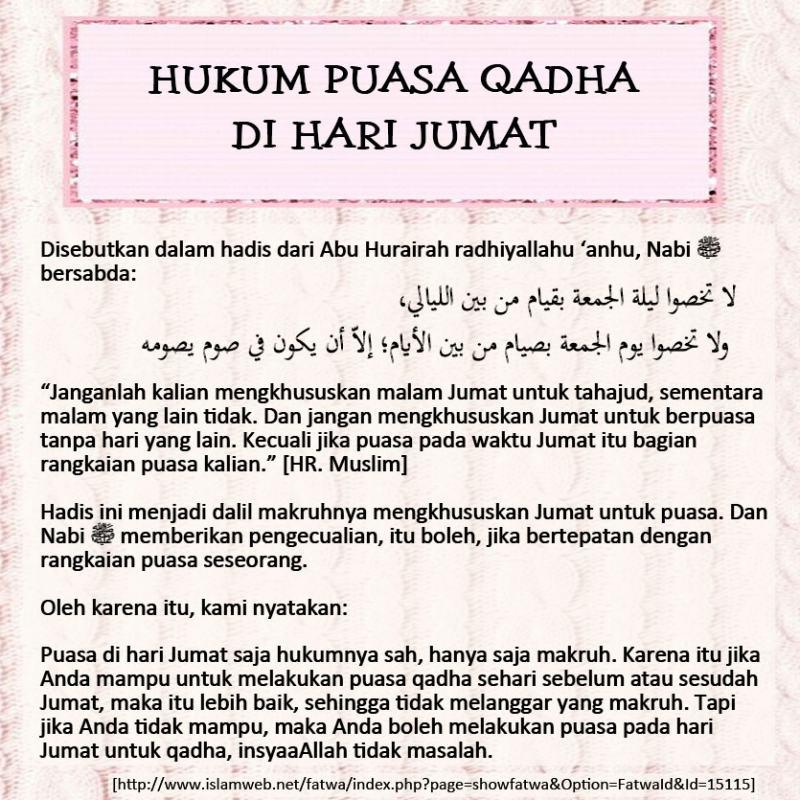 HUKUM PUASA QADHA
DI HARI JUMAT
Disebutkan dalam hadis dari Abu Hurairah radhiyallahu ‘anhu, Nabi ﷺ
bersabda:
لا تخصوا ليلة الجمعة بقيام من بين الليالي،
ولا تخصوا يوم الجمعة بصيام من بين الأيام؛ إلاّ أن يكون في صوم يصومه
“Janganlah kalian mengkhususkan malam Jumat untuk tahajud, sementara
malam yang lain tidak. Dan jangan mengkhususkan Jumat untuk berpuasa
tanpa hari yang lain. Kecuali jika puasa pada waktu Jumat itu bagian
rangkaian puasa kalian.” [HR. Muslim]
Hadis ini menjadi dalil makruhnya mengkhususkan Jumat untuk puasa. Dan
Nabi ﷺ memberikan pengecualian, itu boleh, jika bertepatan dengan
rangkaian puasa seseorang.
Oleh karena itu, kami nyatakan:
Puasa di hari Jumat saja hukumnya sah, hanya saja makruh. Karena itu jika
Anda mampu untuk melakukan puasa qadha sehari sebelum atau sesudah
Jumat, maka itu lebih baik, sehingga tidak melanggar yang makruh. Tapi
jika Anda tidak mampu, maka Anda boleh melakukan puasa pada hari
Jumat untuk qadha, insyaaAllah tidak masalah.
[http://www.islamweb.net/fatwa/index.php?page=showfatwa&Option=FatwaId&Id=15115]